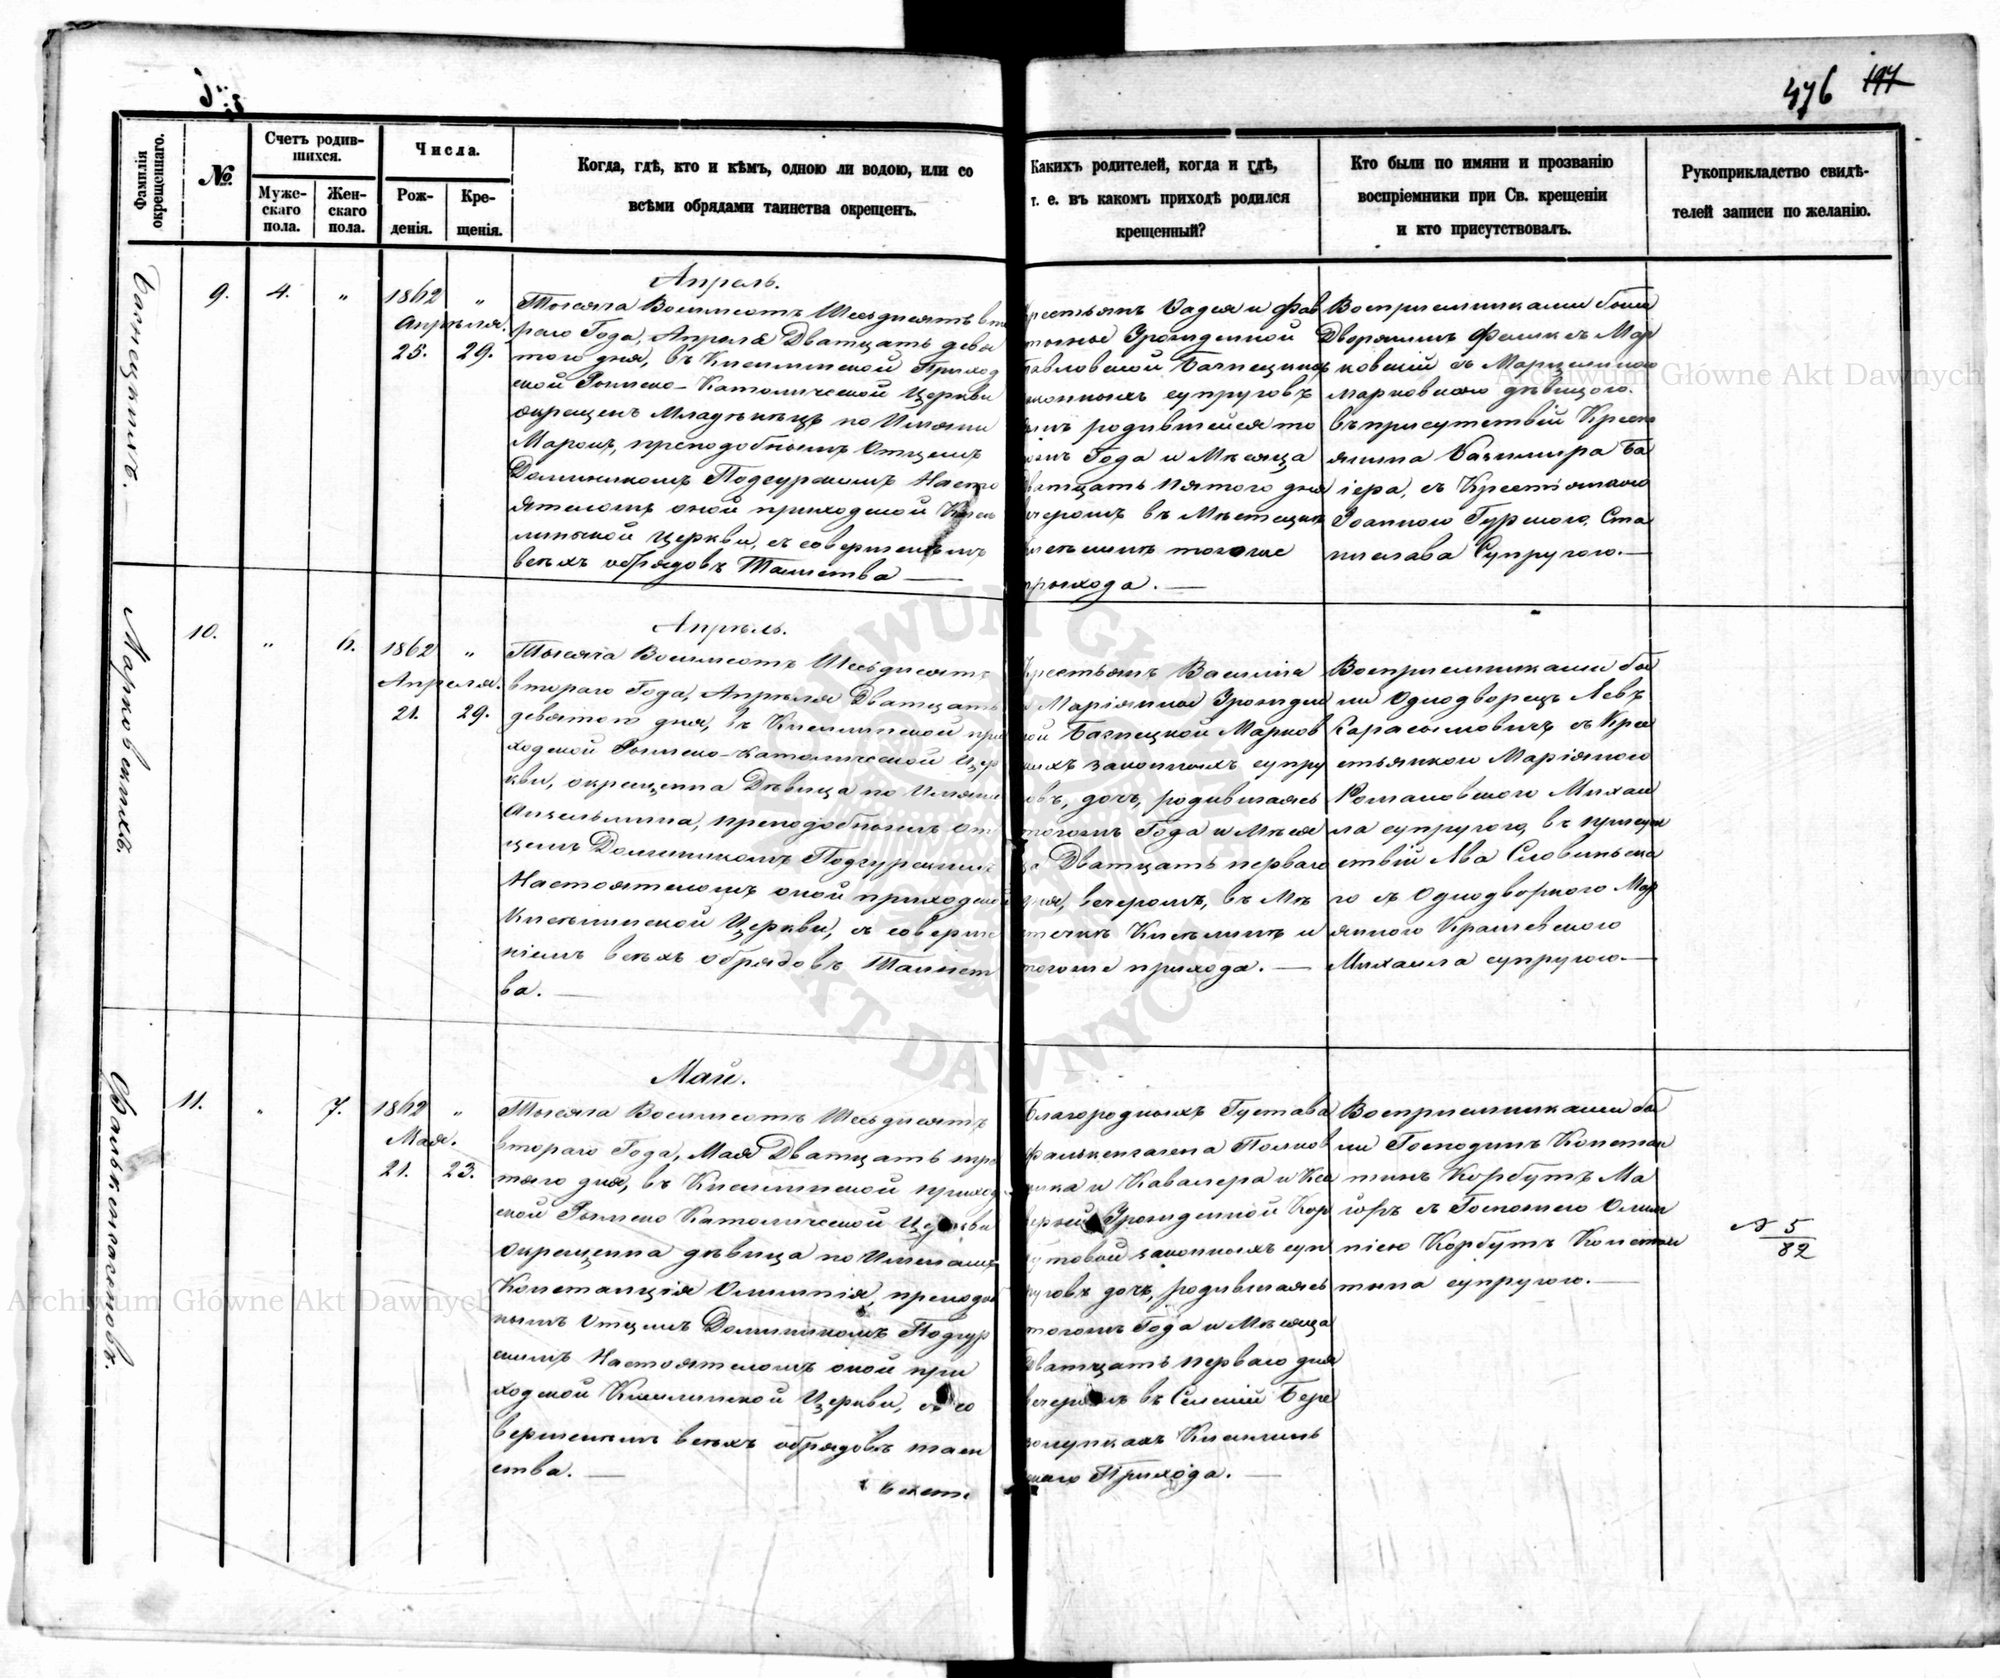 476 197
Фамилія окрещеннаго.
№
Счетъ родив-
шихся.
Муже-
скаго
пола.
Жен-
скаго
пола.
Числа.
Рож-
денія.
Кре-
щенія.
Когда, гдѣ, кто и кѣмъ, одною ли водою, или со
всѣми обрядами таинства окрещенъ.
Какихъ родителей, когда и гдѣ,
т. е. въ какомъ приходѣ родился
крещенный?
Кто были по имяни и прозванію
воспріемники при Св. крещеніи
и кто присутствовалъ.
Рукоприкладство свидѣ-
телей записи по желанію.
9. 4. "
1862 "
Апрѣля.
25. 29.
Апрель.
Тысяча Восимсотъ Шесьдисятъ вто
раго Года, Апреля Дватцать девя
того дня, въ Киселинской Приход
ской Римско-Католической Церкви
окрещенъ Младѣнецъ по Имяни
Маромъ, преподобнымъ Отцемъ
Доминикомъ Подгурскимъ Насто
ятелемъ оной приходской Кисе
линской Церкви, съ совершенiемъ
всѣхъ обрядовъ Таинства —
родившейся то
Года и Мѣсяца
Пятого дня
въ Мѣстечкѣ
тогоже
прихода. —
Восприемниками были
Дворянинъ Феликсъ Мар
ковскій съ Марцелиною
Марковскою дѣвицою.
въ присутствій Кресть
янина Казимира Ба
іера, съ Крестіянкою
Іоанною Гурскою, Ста
нислава Супругою. —
Марковскихъ.
10. " 6.
1862 "
Апреля.
21. 29.
Апрѣль.
Тысяча Восимсотъ Шесьдисятъ
втораго Года, Апрѣля Дватцать
девятого дня, въ Киселинской при
ходской Римско-Католической Цер
кви, окрещенна Дѣвица по Имяни
Анзельмина, преподобнымъ От
цемъ Доминикомъ Подгурскимъ
Настоятелемъ оной приходской
Киселинской Церкви, съ соверше
ніемъ всѣхъ обрядовъ Таинст
ва. —
Крестьянъ Василія
и Маріянны Урожден
ной Багнецкой Марков
скихъ законныхъ супру
говъ, дочь, родившаясь
тогожъ Года и Мѣся
ца Дватцать перваго
дня, вечеромъ, въ Мѣ
стечкѣ Киселинѣ и
тогоже прихода. —
Восприемниками бы
ли Однодворецъ Левъ
Карасымовичъ съ Кре
стьянкою Маріянною
Романовскою Михаи
ла супругою, въ присут
ствій Льва Словинска
го съ Однодворкою Мар
янною Крашевскою
Михаила супругою. —
Фалькенгагеновъ.
11. " 7.
1862 "
Мая.
21. 23.
Май.
Тысяча Восимсотъ Шесьдисятъ
втораго Года, Мая Дватцать тре
тяго дня, въ Киселинской приход
ской Римско Католической Церкви
Окрещенна дѣвица по Именамъ
Констанція Олимпія, преподоб
нымъ Отцемъ Доминикомъ Подгур
скимъ Настоятелемъ оной при
ходской Киселинской Церкви, съ со
вершенiемъ всѣхъ обрядовъ таин
ства. —
Благородныхъ Густава
Фалькенгагена Полков
ника и Кавалера и Ксa
верiи Урожденной Кор
бутовой законныхъ суп
руговъ дочь, родившаясь
тогожъ Года и Мѣсяца
Дватцать перваго дня
вечеромъ въ Селеній Бере
золупкахъ Киселин
скаго Прихода. —
Восприемниками бы
ли Господинъ Констан
тинъ Корбутъ Ма
йоръ съ Госпожею Олим
піею Корбутъ Констан
тина супругою. —
5
82
Archiwum Główne Akt Dawnych
Archiwum Główne Akt Dawnych